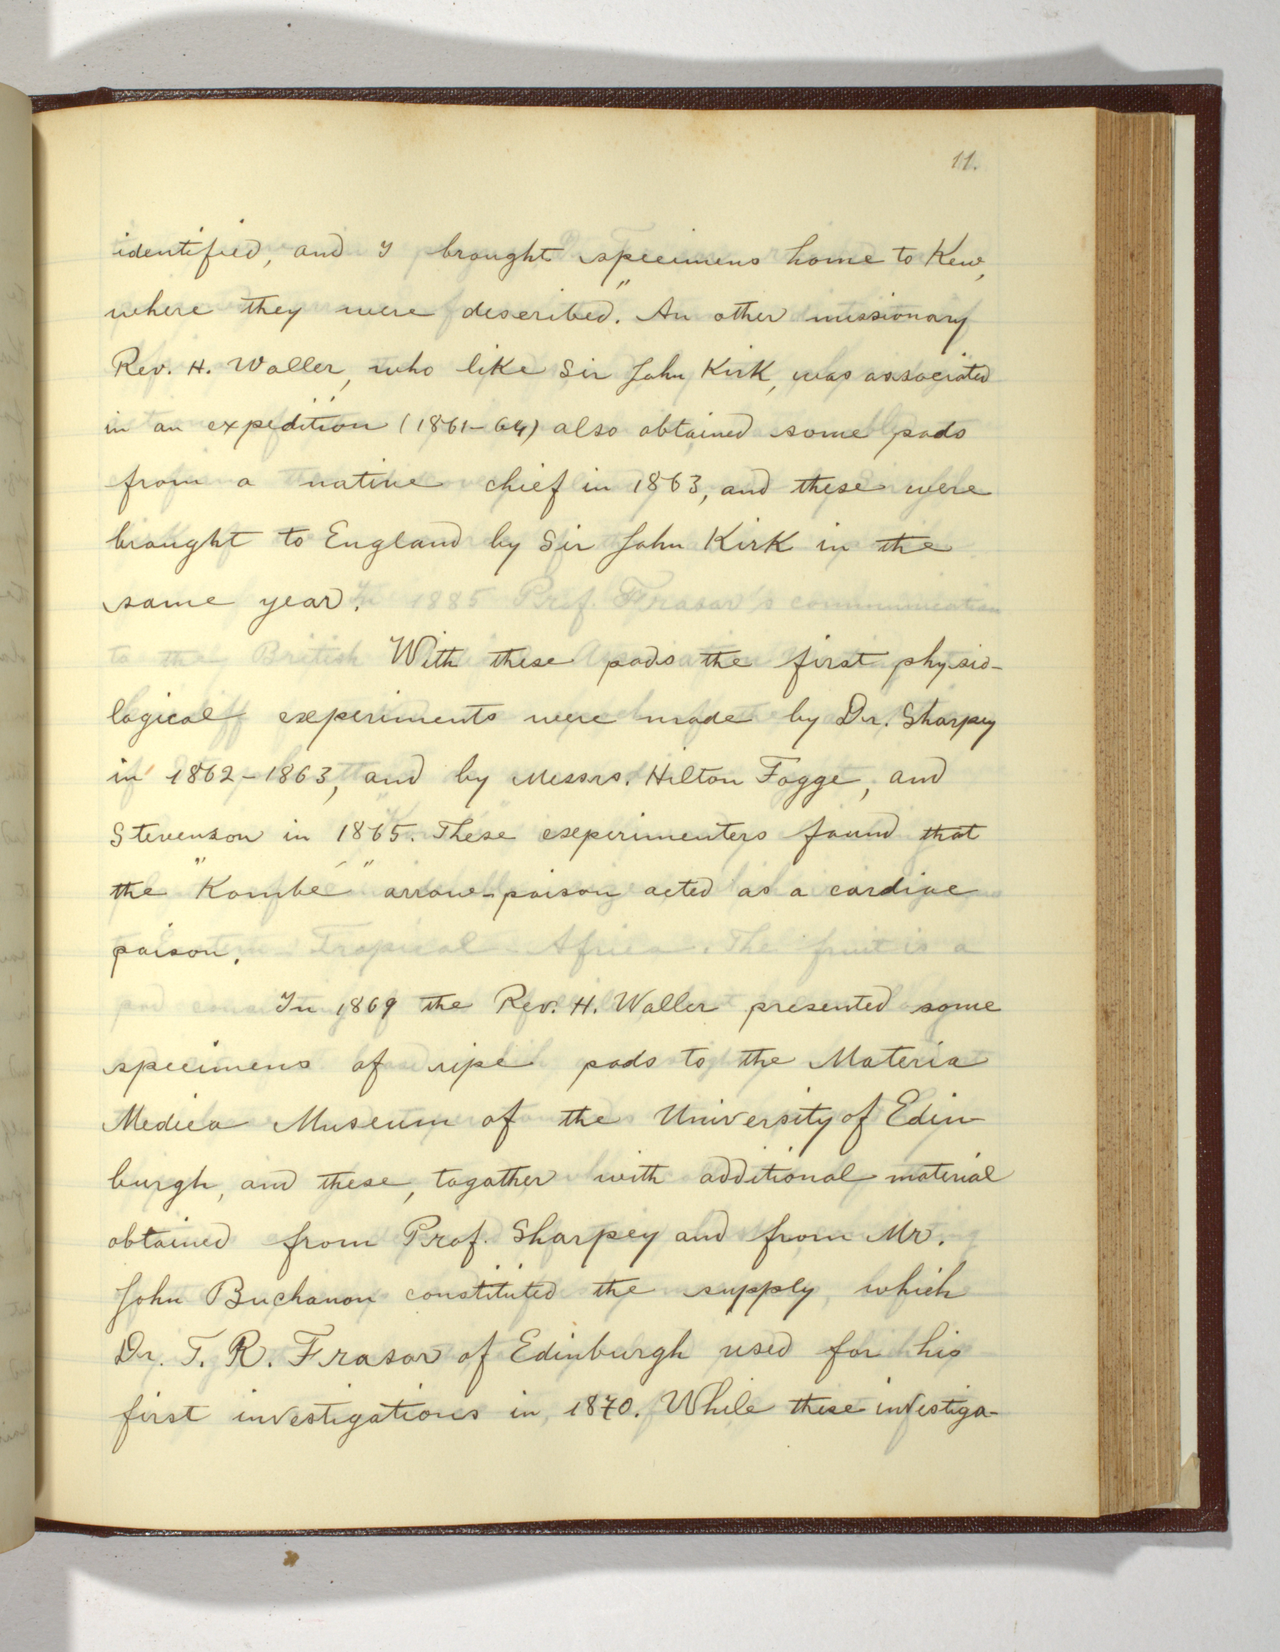 11.
identified, and I brought specimens home to Kew,
where they were described." An other missionary
Rev. H. Waller, who like Sir John Kirk, was associated
in an expedition (1861-64) also obtained some pods
from a native chief in 1863, and these were
brought to England by Sir John Kirk in the
same year.
With these pods the first physio-
logical experiments were made by Dr. Sharpey
in 1862-1863, and by Messrs. Hilton Fagge, and
Stevenson in 1865. These experimenters found that
the "Kombé" arrow-poison acted as a cardiac
poison.
In 1869 the Rev. H. Waller presented some
specimens of ripe pods to the Materia
Medica Museum of the University of Edin-
burgh, and these, togather with additional material
obtained from Prof. Sharpey and from Mr.
John Buchanon constituted the supply, which
Dr. T. R. Frasor of Edinburgh used for his
first investigations in 1870. While these investiga-